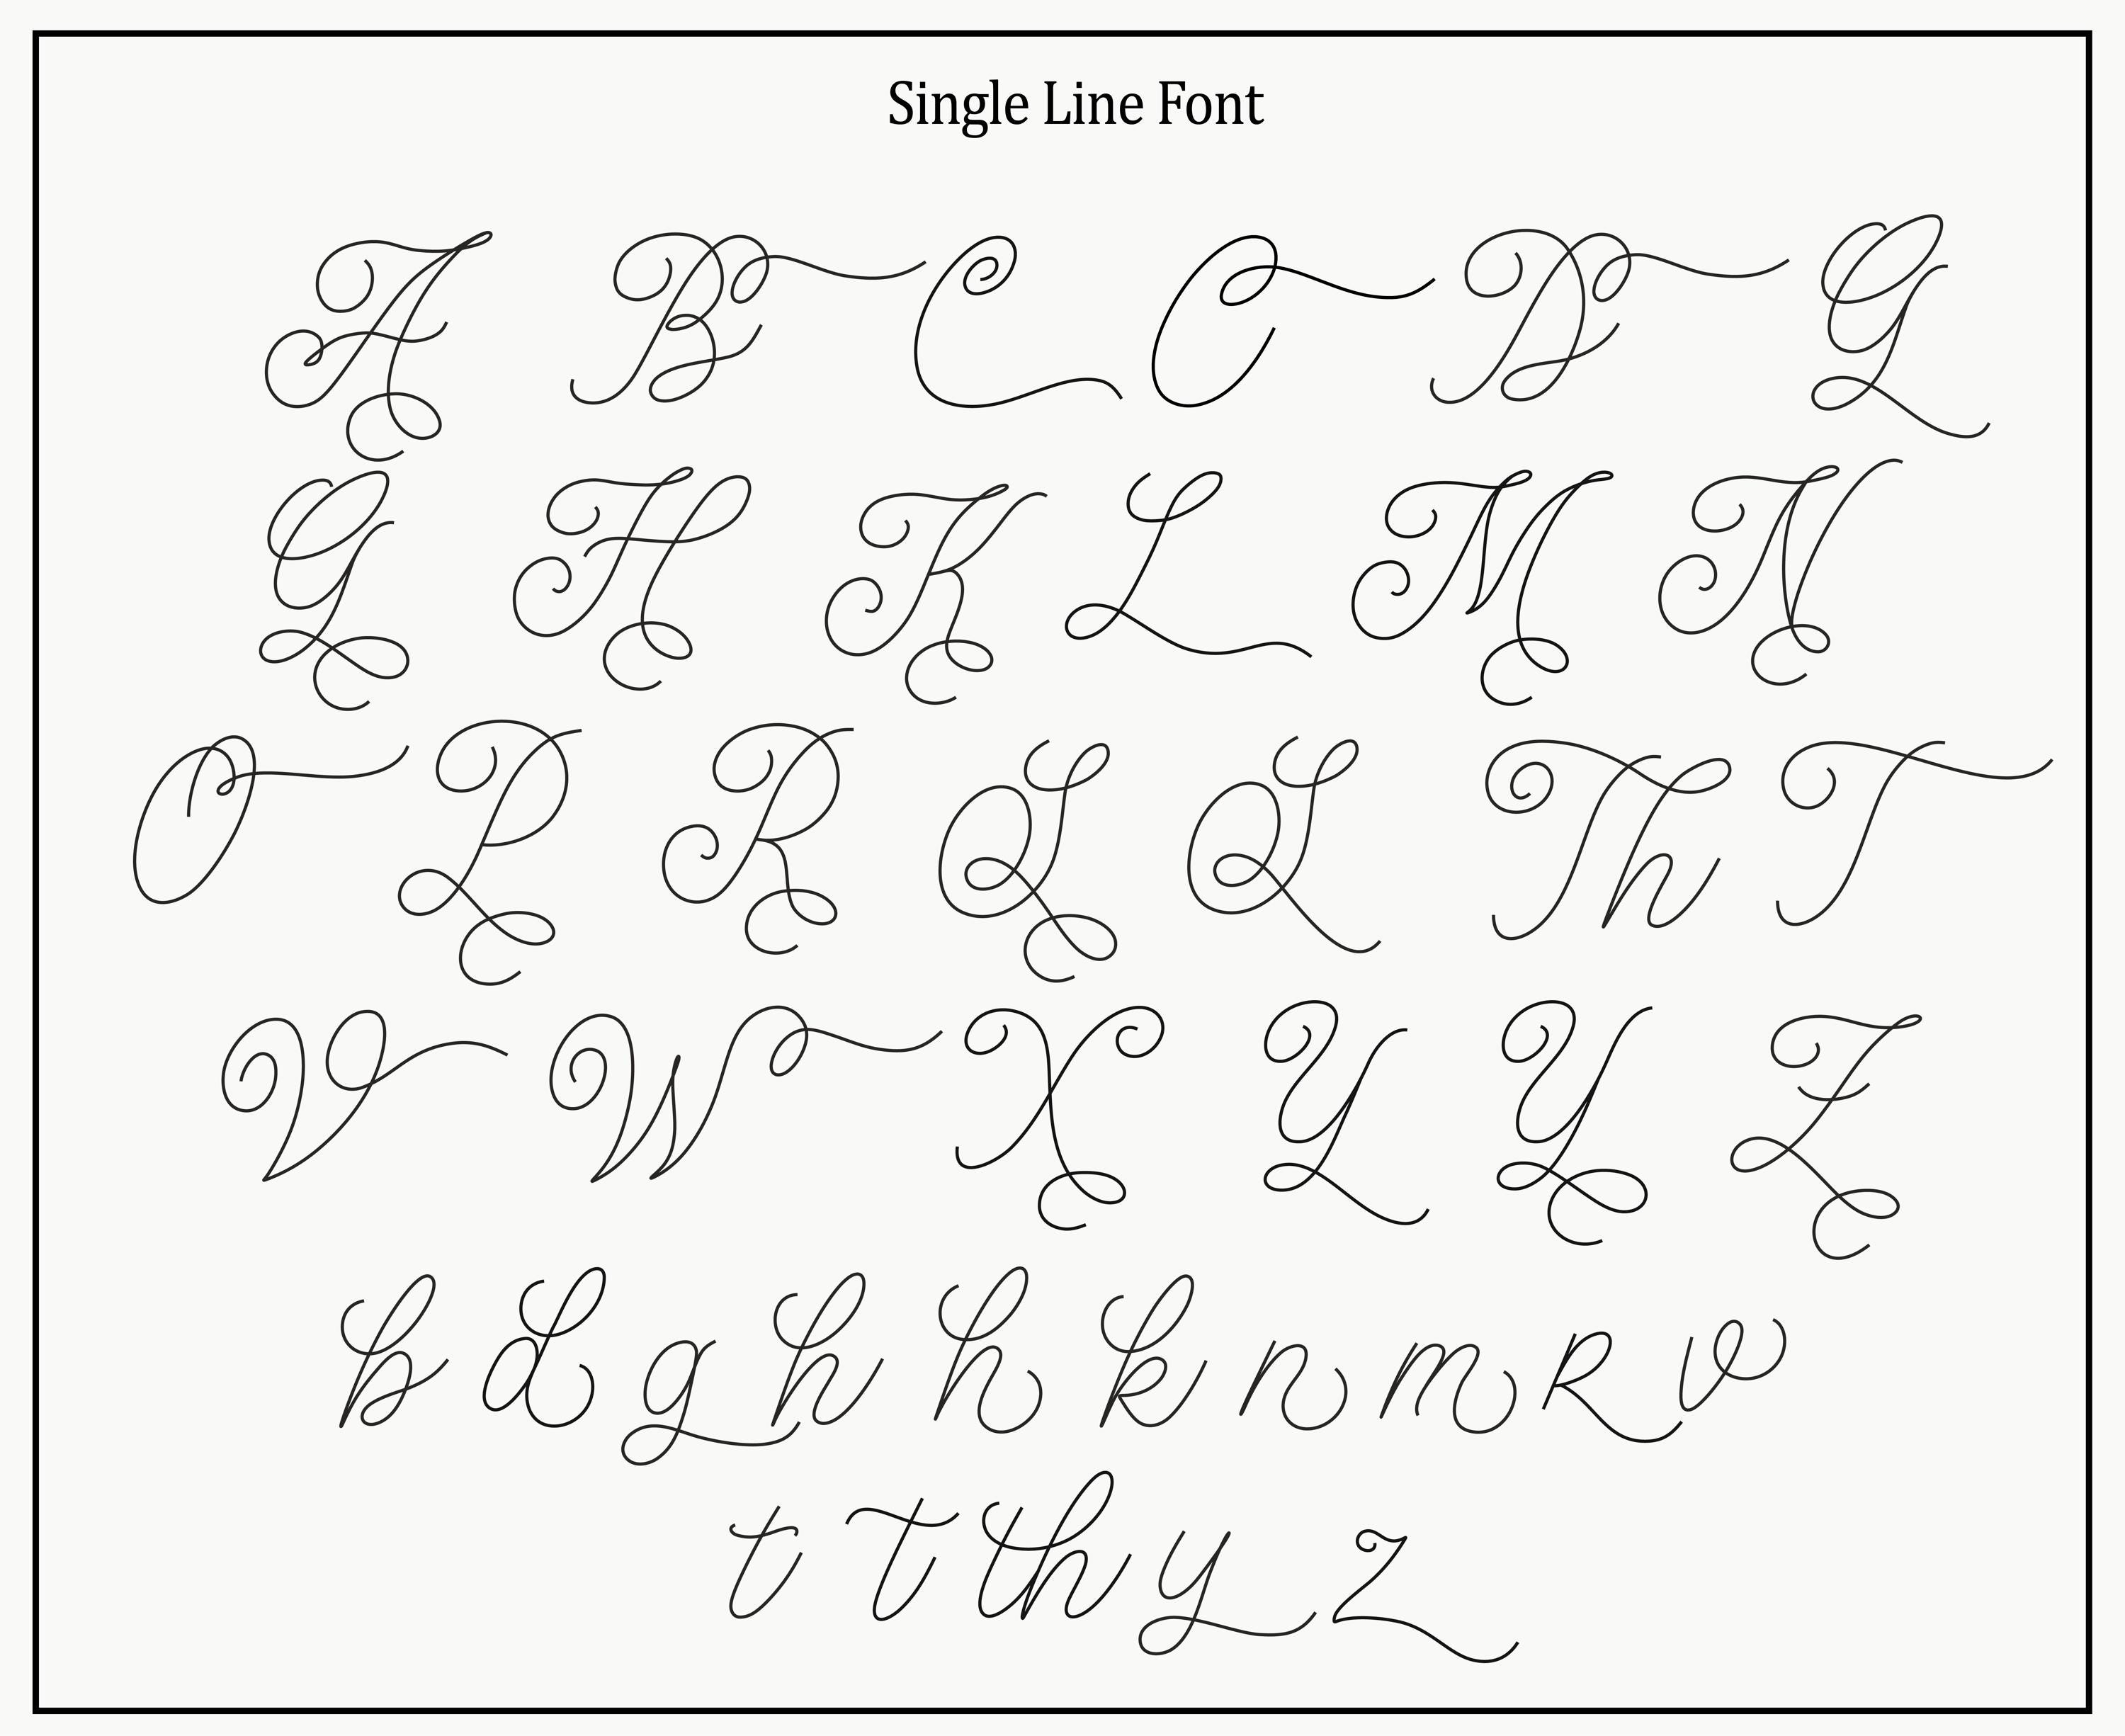 Single Line Font
A B C C D G
G H K L M N
O P R Q Q Th T
V W X Y Y Z
b d g h h k n m r v
t t th y z